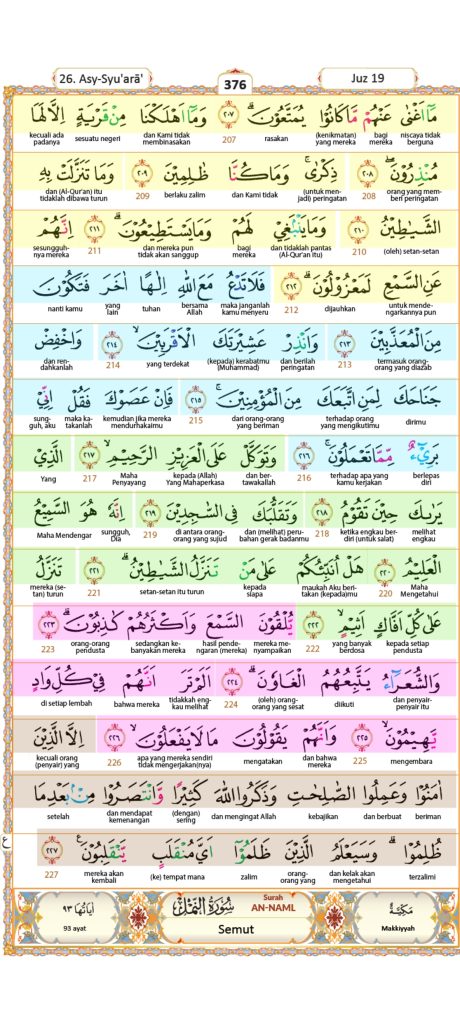 26. Asy-Syu'arā'
376
Juz 19
مَآ اَغْنٰى عَنْهُمْ مَّا كَانُوْا يُمَتَّعُوْنَۗ ۝٢٠٧ وَمَآ اَهْلَكْنَا مِنْ قَرْيَةٍ اِلَّا لَهَا
niscaya tidak berguna bagi mereka (kenikmatan) yang mereka rasakan 207 dan Kami tidak membinasakan sesuatu negeri kecuali ada padanya
مُنْذِرُوْنَۖ ۝٢٠٨ ذِكْرٰىۚ وَمَا كُنَّا ظٰلِمِيْنَ ۝٢٠٩ وَمَا تَنَزَّلَتْ بِهِ
orang yang memberi peringatan 208 (untuk menjadi) peringatan dan Kami tidak berlaku zalim 209 dan (Al-Qur'an) itu tidaklah dibawa turun
الشَّيٰطِيْنُ ۝٢١٠ وَمَا يَنْۢبَغِيْ لَهُمْ وَمَا يَسْتَطِيْعُوْنَۗ ۝٢١١ اِنَّهُمْ
(oleh) setan-setan 210 dan tidaklah pantas (Al-Qur'an itu) bagi mereka dan mereka pun tidak akan sanggup 211 sesungguhnya mereka
عَنِ السَّمْعِ لَمَعْزُوْلُوْنَۗ ۝٢١٢ فَلَا تَدْعُ مَعَ اللّٰهِ اِلٰهًا اٰخَرَ فَتَكُوْنَ
untuk mendengarkannya pun dijauhkan 212 maka janganlah kamu menyeru bersama Allah tuhan yang lain nanti kamu
مِنَ الْمُعَذَّبِيْنَ ۝٢١٣ وَاَنْذِرْ عَشِيْرَتَكَ الْاَقْرَبِيْنَۙ ۝٢١٤ وَاخْفِضْ
termasuk orang-orang yang diazab 213 dan berilah peringatan (kepada) kerabatmu (Muhammad) yang terdekat 214 dan rendahkanlah
جَنَاحَكَ لِمَنِ اتَّبَعَكَ مِنَ الْمُؤْمِنِيْنَۚ ۝٢١٥ فَاِنْ عَصَوْكَ فَقُلْ اِنِّيْ
dirimu terhadap orang yang mengikutimu dari orang-orang yang beriman 215 kemudian jika mereka mendurhakaimu maka katakanlah sungguh, aku
بَرِيْۤءٌ مِّمَّا تَعْمَلُوْنَۚ ۝٢١٦ وَتَوَكَّلْ عَلَى الْعَزِيْزِ الرَّحِيْمِۙ ۝٢١٧ الَّذِيْ
berlepas diri terhadap apa yang kamu kerjakan 216 dan bertawakallah kepada (Allah) Yang Mahaperkasa Maha Penyayang 217 Yang
يَرٰىكَ حِيْنَ تَقُوْمُ ۝٢١٨ وَتَقَلُّبَكَ فِى السّٰجِدِيْنَ ۝٢١٩ اِنَّهٗ هُوَ السَّمِيْعُ
melihat engkau ketika engkau berdiri (untuk salat) 218 dan (melihat) perubahan gerak badanmu di antara orang-orang yang sujud 219 sungguh, Dia Maha Mendengar
الْعَلِيْمُ ۝٢٢٠ هَلْ اُنَبِّئُكُمْ عَلٰى مَنْ تَنَزَّلُ الشَّيٰطِيْنُۗ ۝٢٢١ تَنَزَّلُ
Maha Mengetahui 220 maukah Aku beritakan (kepada)mu kepada siapa setan-setan itu turun 221 mereka (setan) turun
عَلٰى كُلِّ اَفَّاكٍ اَثِيْمٍۙ ۝٢٢٢ يُّلْقُوْنَ السَّمْعَ وَاَكْثَرُهُمْ كٰذِبُوْنَۗ ۝٢٢٣
kepada setiap pendusta yang banyak berdosa 222 mereka menyampaikan hasil pendengaran (mereka) sedangkan kebanyakan mereka orang-orang pendusta 223
وَالشُّعَرَاۤءُ يَتَّبِعُهُمُ الْغَاوٗنَۗ ۝٢٢٤ اَلَمْ تَرَ اَنَّهُمْ فِيْ كُلِّ وَادٍ
dan penyair-penyair itu diikuti (oleh) orang-orang yang sesat 224 tidakkah engkau melihat bahwa mereka di setiap lembah
يَّهِيْمُوْنَۙ ۝٢٢٥ وَاَنَّهُمْ يَقُوْلُوْنَ مَا لَا يَفْعَلُوْنَۙ ۝٢٢٦ اِلَّا الَّذِيْنَ
mengembara 225 dan bahwa mereka mengatakan apa yang mereka sendiri tidak mengerjakan(nya) 226 kecuali orang (penyair) yang
اٰمَنُوْا وَعَمِلُوا الصّٰلِحٰتِ وَذَكَرُوا اللّٰهَ كَثِيْرًا وَّانْتَصَرُوْا مِنْۢ بَعْدِ مَا
beriman dan berbuat kebajikan dan mengingat Allah (dengan) sering dan mendapat kemenangan setelah
ظُلِمُوْاۗ وَسَيَعْلَمُ الَّذِيْنَ ظَلَمُوْٓا اَيَّ مُنْقَلَبٍ يَّنْقَلِبُوْنَ ۝٢٢٧
ع
terzalimi dan kelak akan mengetahui orang-orang yang zalim (ke) tempat mana mereka akan kembali 227
مَكِّيَّةٌ
Makkiyyah
سُوْرَةُ النَّمْلِ
Surah
AN-NAML
Semut
اٰيَاتُهَا ٩٣
93 ayat